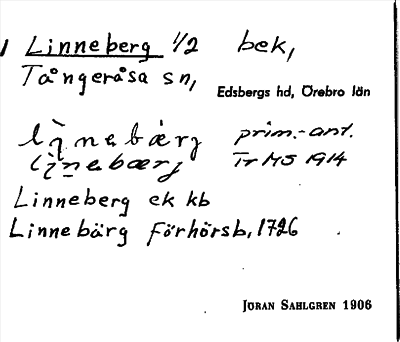 Linneberg 1/2 bek,
Tångeråsa sn,
Edsbergs hd, Örebro län
prim.-ant.
Tr MS 1914
Linneberg ek kb
Linnebärg förhörsb, 1726
JÖRAN SAHLGREN 1906